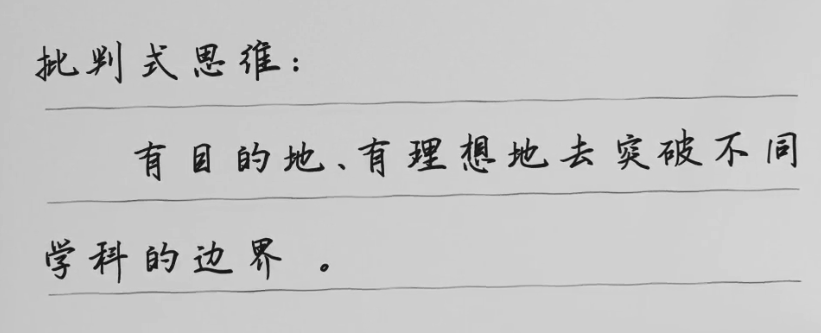 批判式思维：
有目的地、有理想地去突破不同
学科的边界。